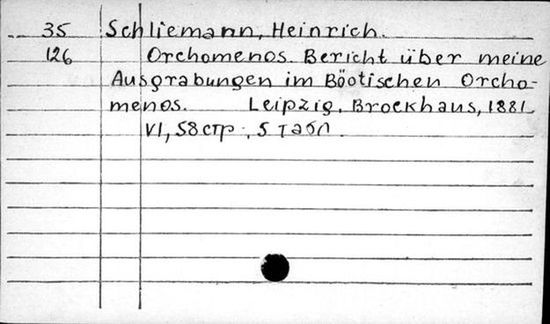 35 Schliemann, Heinrich.
126 Orchomenos. Bericht über meine
Ausgrabungen im Böotischen Orcho-
menos. Leipzig, Brockhaus, 1881.
VI, 58 стр., 5 табл.